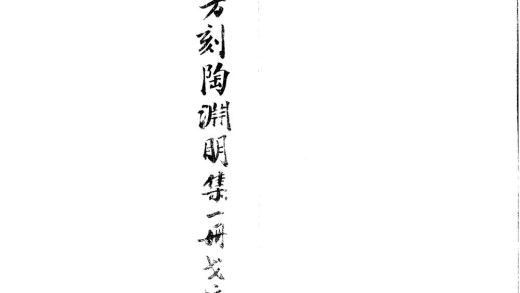 刻陶淵明集一冊